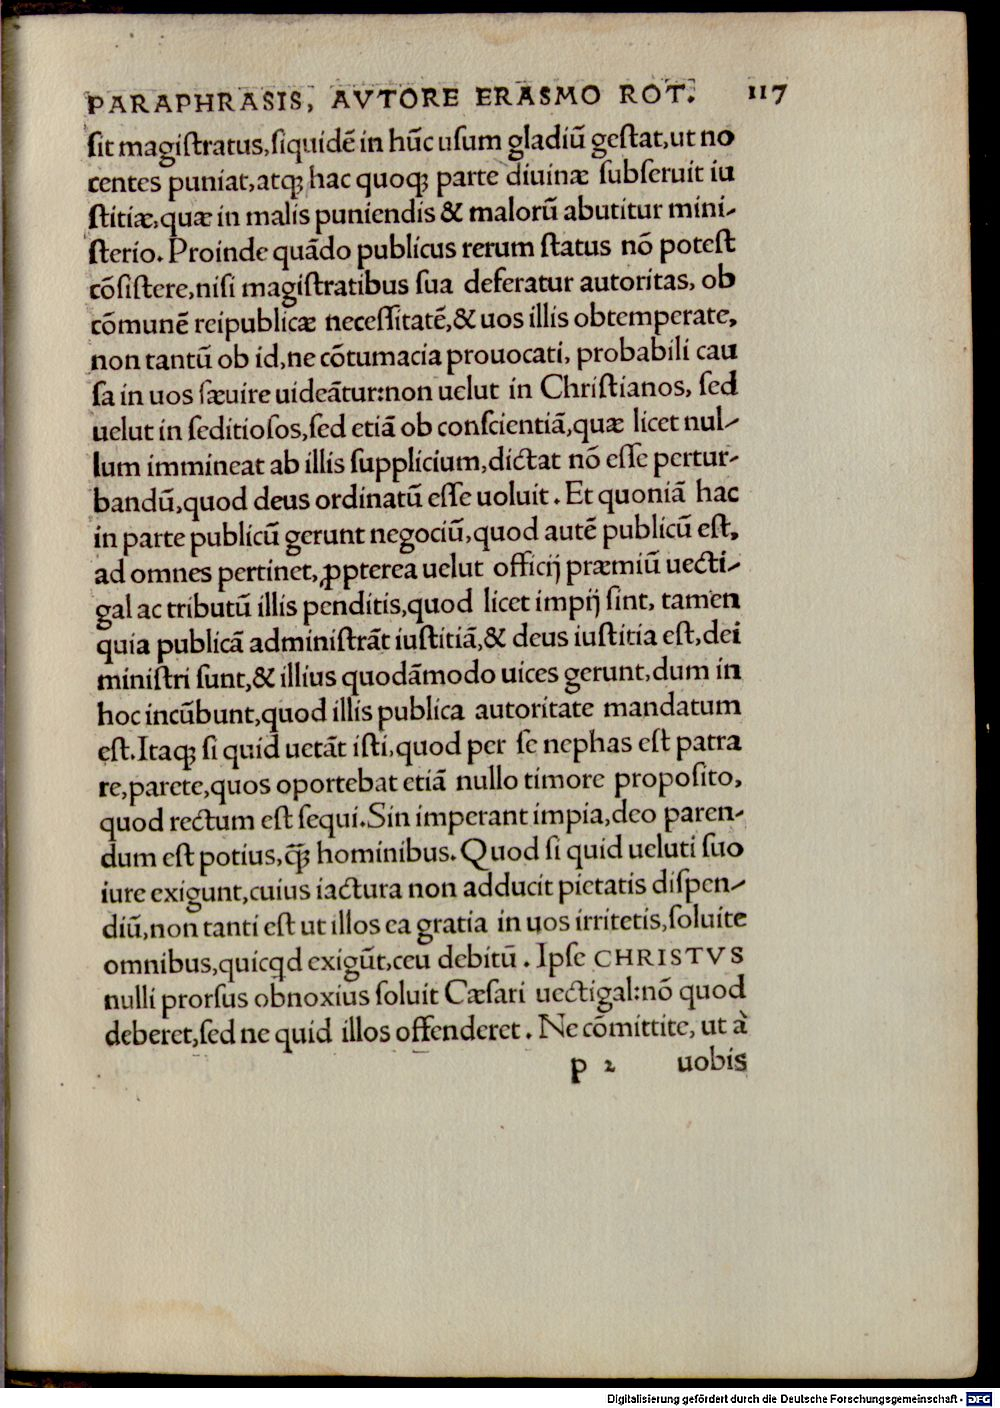 PARAPHRASIS, AVTORE ERASMO ROT. 117
ſit magiſtratus,ſiquidē in hūc uſum gladiū geſtat,ut no
centes puniat,atqꝫ hac quoqꝫ parte diuinæ ſubſeruit iu
ſtitiæ,quæ in malis puniendis & malorū abutitur mini-
ſterio. Proinde quādo publicus rerum ſtatus nō poteſt
cōſiſtere,niſi magiſtratibus ſua deferatur autoritas, ob
cōmunē reipublicæ neceſſitatē,& uos illis obtemperate,
non tantū ob id,ne cōtumacia prouocati, probabili cau
ſa in uos ſæuire uideātur:non uelut in Chriſtianos, ſed
uelut in ſeditioſos,ſed etiā ob conſcientiā,quæ licet nul-
lum immineat ab illis ſupplicium,dictat nō eſſe pertur-
bandū,quod deus ordinatū eſſe uoluit. Et quoniā hac
in parte publicū gerunt negociū,quod autē publicū eſt,
ad omnes pertinet,ꝓpterea uelut officij præmiū uecti-
gal ac tributū illis penditis,quod licet impij ſint, tamen
quia publicā adminiſtrāt iuſtitiā,& deus iuſtitia eſt,dei
miniſtri ſunt,& illius quodāmodo uices gerunt,dum in
hoc incūbunt,quod illis publica autoritate mandatum
eſt.Itaqꝫ ſi quid uetāt iſti,quod per ſe nephas eſt patra
re,parete,quos oportebat etiā nullo timore propoſito,
quod rectum eſt ſequi.Sin imperant impia,deo paren-
dum eſt potius,q̄ꝫ hominibus. Quod ſi quid ueluti ſuo
iure exigunt,cuius iactura non adducit pietatis diſpen-
diū,non tanti eſt ut illos ea gratia in uos irritetis,ſoluite
omnibus,quicqd exigūt,ceu debitū. Ipſe CHRISTVS
nulli prorſus obnoxius ſoluit Cæſari uectigal:nō quod
deberet,ſed ne quid illos offenderet. Ne cōmittite, ut à
p 2 uobis
Digitalisierung gefördert durch die Deutsche Forschungsgemeinschaft - DFG